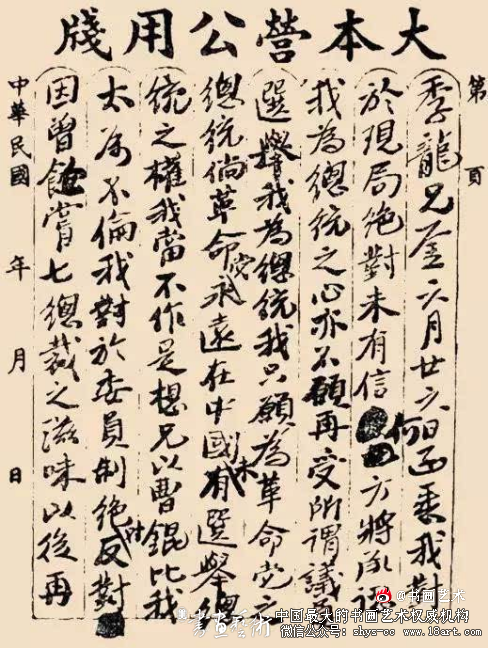 大本營公用牋
第 頁
季龍兄鑒六月廿六日函悉我對
於現局絕對未有信何方將承認
我為總統之心亦不願再受所謂議員
選舉我為總統我只願為革命党之
總統倘革命永遠在中國未有選舉總
統之權我當不作是想兄以曹錕比我
太為不倫我對於委員制絕反對
因曾飽嘗七總裁之滋味以後再
中華民國 年 月 日
@书画艺术
書畫藝術
中国最大的书画艺术权威机构
微信公众号：shys-cc www.18art.com